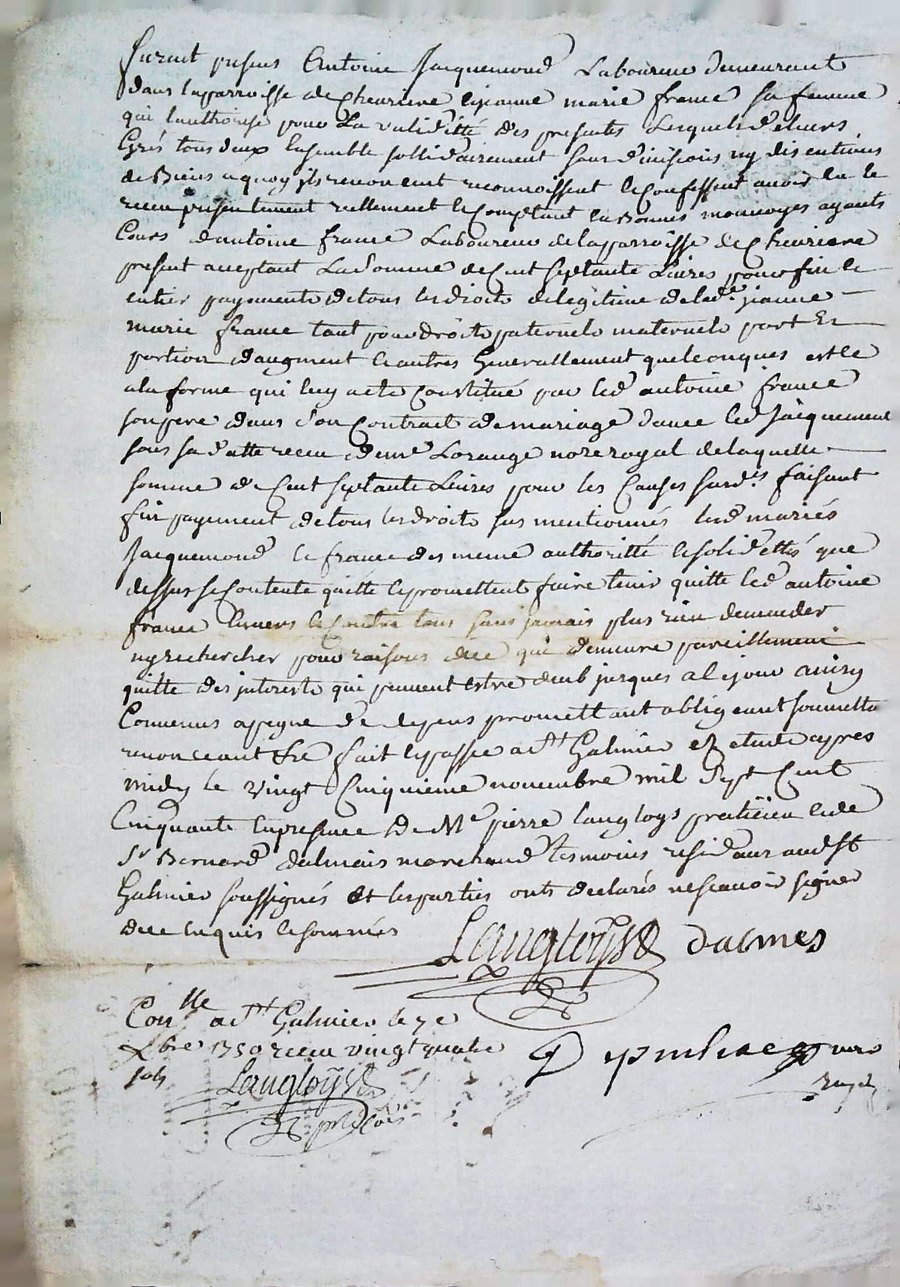 furent presens Antoine Jacquemond Laboureur demeurant
dans la parroisse de Chevriere & jeanne marie france sa femme
qui lauthorise pour La validitté des presentes Lesquels de leurs
Grés tous deux Ensemble sollidairement sans division ny discutions
de Biens a quoy ils renoncent reconnoissent & Confessent avoir Eu &
receu presentement reellement & Comptant En Bonnes monnoyes ayants
Cours d'antoine france Laboureur de la parroisse de Chevriere
present acceptant La Somme de Cent Septante Livres pour fin &
entier payement de tous les droits de legitime de lad.e jeanne
marie france tant pour droits paternels maternels part Et
portion d'augment & autres Generallement quelconques est &
a la forme qui luy a eté Constitué par led antoine france
son pere dans Son Contract de mariage d'avec led Jacquemond
sous sa datte receu de me Lorange nore royal de laquelle
somme de Cent Septante Livres pour les Causes susd.s faisant
fin payement de tous les droits sus mentionnés lesd mariés
Jacquemond & france des meme authoritté & soliditté que
dessus se Contente quitte & promettent faire tenir quitte led antoine
france Envers & Contre tous sans jamais plus rien demander
ny rechercher pour raisons de ce qui demeure pareillement
quitte des interests qui peuvent estre deub jusques a ce jour ainsy
Convenus a peyne de depens promettant obligeant soumetta
renonceant &re fait & passé a St Galmier Ez etude apres
midy le Vingt Cinquieme novembre mil Sept Cent
Cinquante En presence de Me pierre Langloys praticien & de
Sr Bernard dalmais marchand temoins residans aud St
Galmier soussignés Et les parties onts declarés ne scavoir signer
de ce Enquis & sommés
Langloys dalmes
Conlle a St Galmier le 7e
Xbre 1750 receu vingt quatre
sols Langloys
nore
royal